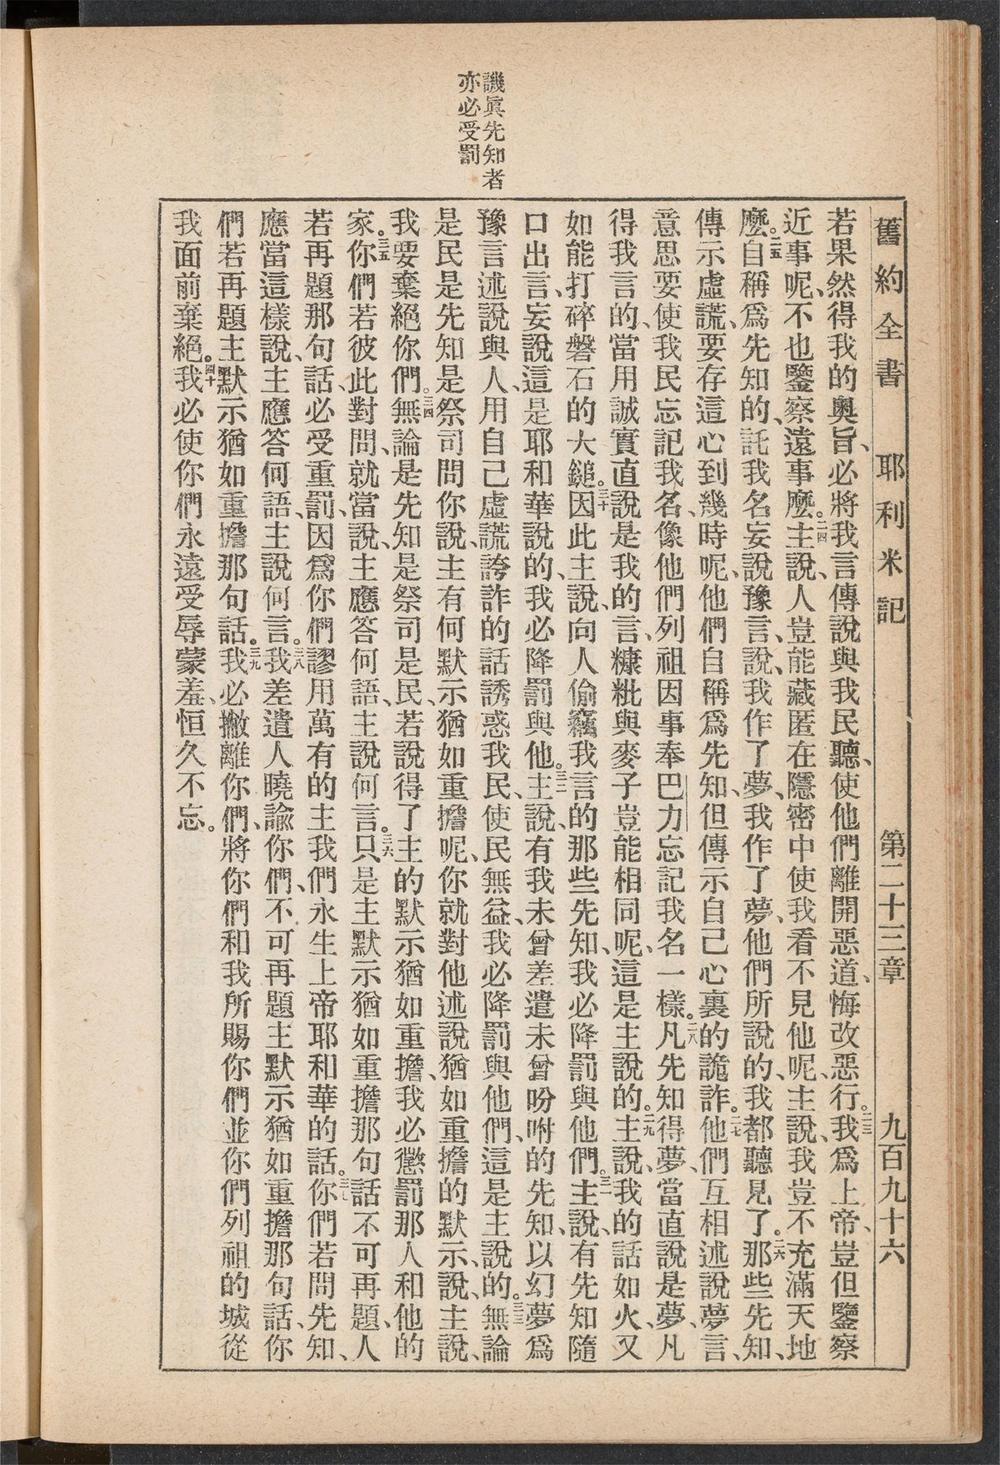 舊約全書　耶利米記　第二十三章　九百九十六
譏眞先知者
亦必受罰
若果然得我的奧旨、必將我言傳說與我民聽、使他們離開惡道、悔改惡行。二三我爲上帝、豈但鑒察
近事呢、不也鑒察遠事麼。二四主說、人豈能藏匿在隱密中使我看不見他呢、主說、我豈不充滿天地
麼。二五自稱爲先知的、託我名妄說豫言、說、我作了夢、我作了夢、他們所說的、我都聽見了。二六那些先知、
傳示虛謊、要存這心到幾時呢、他們自稱爲先知、但傳示自己心裏的詭詐。二七他們互相述說夢言、
意思要使我民忘記我名、像他們列祖因事奉巴力忘記我名一樣。二八凡先知得夢、當直說是夢、凡
得我言的、當用誠實直說是我的言、糠粃與麥子豈能相同呢、這是主說的。二九主說、我的話如火、又
如能打碎磐石的大鎚。三十因此主說、向人偷竊我言的那些先知、我必降罰與他們。三一主說、有先知隨
口出言、妄說這是耶和華說的、我必降罰與他。三二主說、有我未曾差遣未曾吩咐的先知、以幻夢爲
豫言述說與人、用自己虛謊誇詐的話誘惑我民、使民無益、我必降罰與他們、這是主說的。三三無論
是民是先知是祭司問你說、主有何默示猶如重擔呢、你就對他述說猶如重擔的默示、說、主說、
我要棄絕你們。三四無論是先知是祭司是民、若說得了主的默示猶如重擔、我必懲罰那人和他的
家。三五你們若彼此對問、就當說、主應答何語、主說何言。三六只是主默示猶如重擔那句話不可再題、人
若再題那句話、必受重罰、因爲你們謬用萬有的主我們永生上帝耶和華的話。三七你們若問先知、
應當這樣說、主應答何語、主說何言。三八我差遣人曉諭你們、不可再題主默示猶如重擔那句話、你
們若再題主默示猶如重擔那句話。三九我必撇離你們、將你們和我所賜你們並你們列祖的城從
我面前棄絕。四十我必使你們永遠受辱蒙羞、恒久不忘。